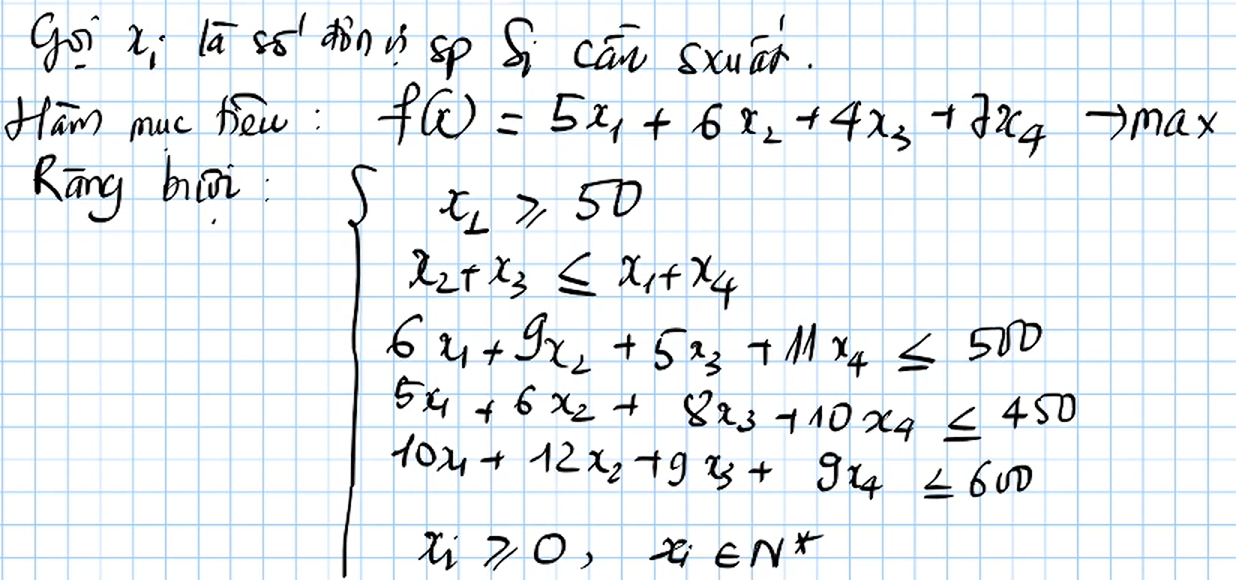 Gọi xᵢ là số đơn vị sp Sᵢ cần sxuất.
Hàm mục tiêu : f(x) = 5x₁ + 6x₂ + 4x₃ + 7x₄ → max
Ràng buộc :
x₁ ≥ 50
x₂ + x₃ ≤ x₁ + x₄
6x₁ + 9x₂ + 5x₃ + 11x₄ ≤ 500
5x₁ + 6x₂ + 8x₃ + 10x₄ ≤ 450
10x₁ + 12x₂ + 9x₃ + 9x₄ ≤ 600
xᵢ ≥ 0, xᵢ ∈ N*